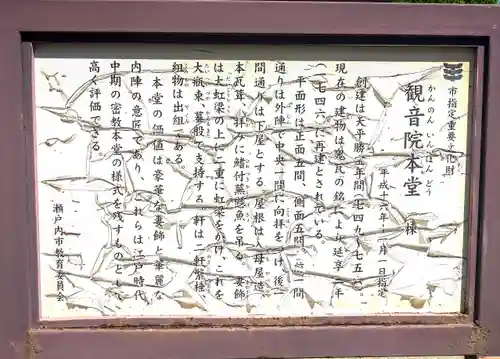 市指定重要文化財
かんのん いん ほん どう
観音院本堂 一棟
平成十六年十一月一日指定
創建は天平勝宝年間（七四九〜七五七）。
現在の建物は鬼瓦の銘により延享三年
（一七四六）に再建とされている。
平面形は正面五間、側面五間、一間
通りは外陣で中央一間に向拝をつけ、後一
間通りは下屋とする。屋根は入母屋造、
本瓦葺、拝みに鰭付蕪懸魚を吊る。妻飾
は大虹梁の上に二重に虹梁をかけ、これを
大瓶束、蟇股で支持する。軒は二軒繁棰、
組物は出組である。
本堂の価値は豪華な妻飾と華麗な
内陣の意匠であり、これらは江戸時代
中期の密教本堂の様式を残すものとして
高く評価できる。
瀬戸内市教育委員会